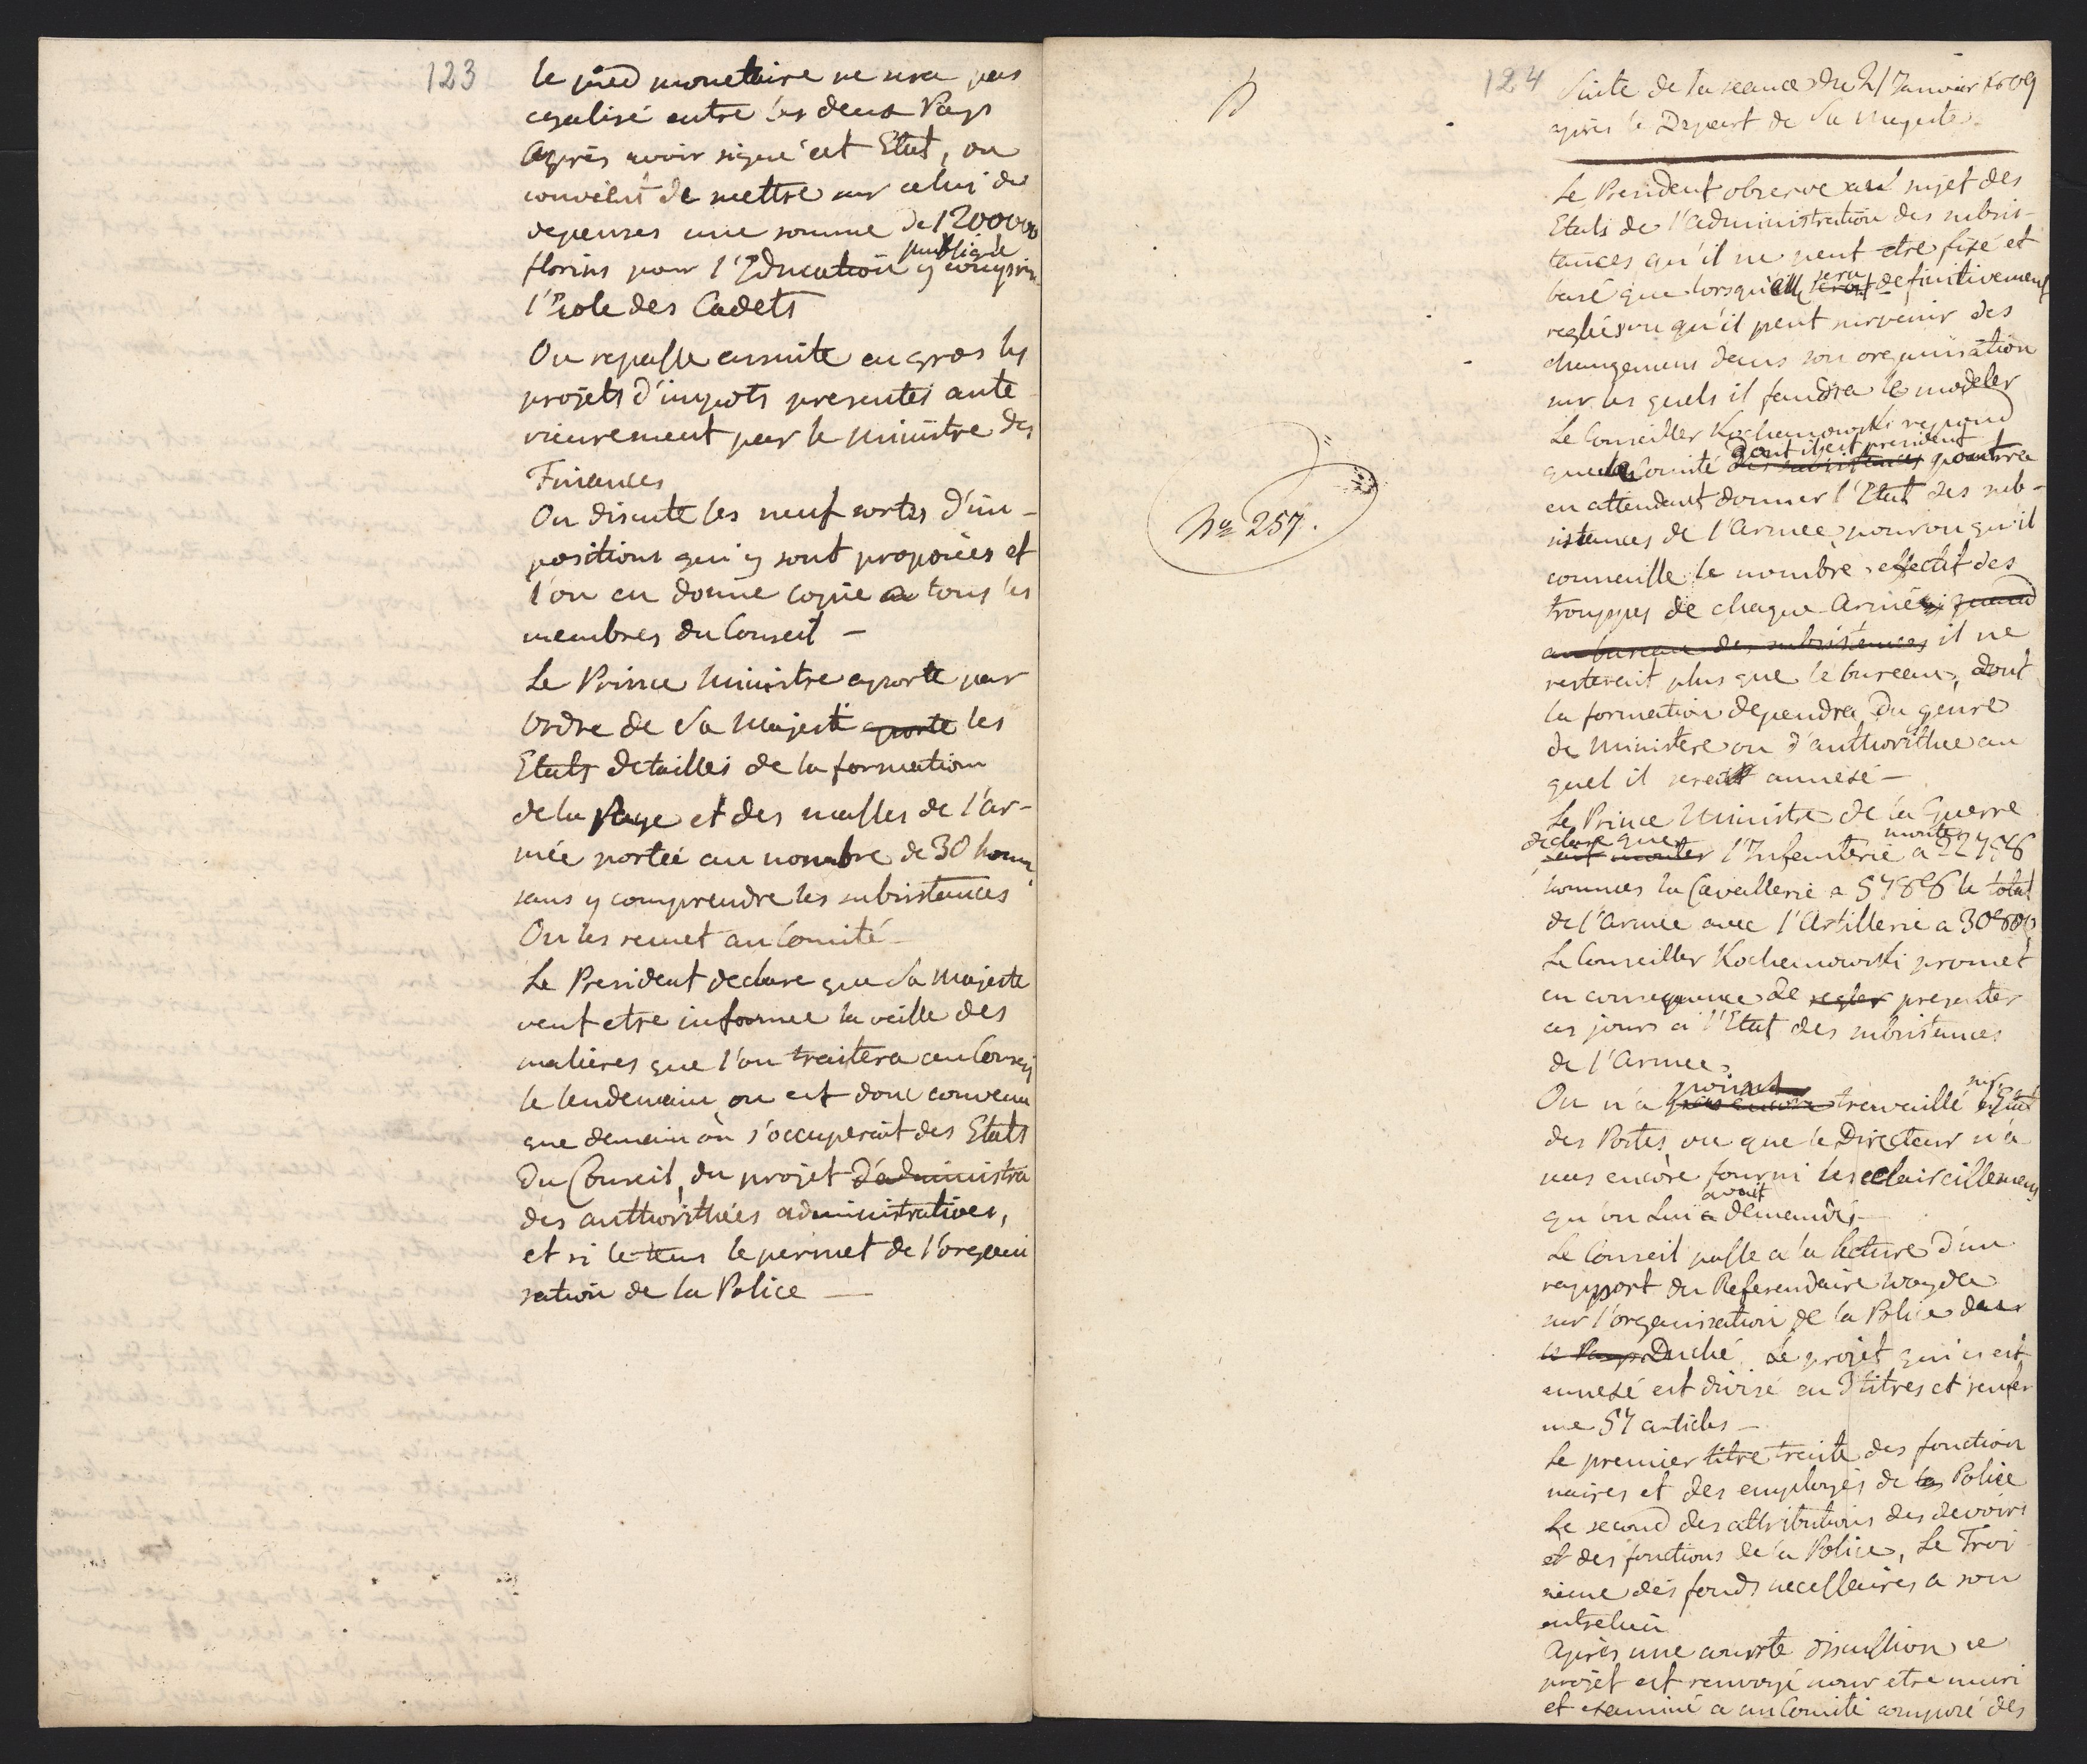 123
le pied monetaire ne sera pas
egalisé entre les deux Pays
Après avoir signé cet Etat, on
convient de mettre sur celui de
depenses une somme de 1200000
publique
florins pour l'Education y compris
l'Ecole des Cadets
On repasse ensuite en gros les
projets d'impots presentés ante
rieurement par le Ministre des
Finances
On discute les neuf sortes d'im-
positions qui y sont proposées et
l'on en donne copie a tous les
membres du Conseil —
Le Prince Ministre aporte par
Ordre de Sa Majesté aporte les
Etats detaillés de la formation
de la Paye et des masses de l'ar-
mée portée au nombre de 30 hom
sans y comprendre les subsistances
On les remet au Comité —
Le President declare que Sa Majeste
veut etre informee la veille des
matieres que l'on traitera au Conseil
le lendemain, on est donc convenu
que demain on s'occuperoit des Etats
du Conseil, du projet d'administra
des authorithées administratives,
et si le tems le permet de l'organi
sation de la Police —
No 257.
124
Suite de la seance du 21 Janvier 1809
après le Depart de Sa Majesté
Le President observe au sujet des
Etats de l'administration des subsis-
tances qu'il ne peut etre fixé et
basé que lorsqu'elle sera definitivement
reglée vu qu'il peut survenir des
changemens dans son organisation
sur les quels il faudra le modeler
Le Conseiller Kochanowski repond
dont il est president
que le Comité des subsistances pourra
en attendant donner l'Etat des sub-
sistances de l'Armee, pourvu qu'il
connaisse le nombre effectif des
trouppes de chaque Armée, quand
au bureau des subsistances il ne
resteroit plus que le bureau, dont
la formation dependra du genre
de Ministere ou d'authorithee au
quel il seroit annexé —
Le Prince Ministre de la Guerre
declare que monte
fait monter l'Infanterie a 22786
hommes la Cavallerie a 5786 le total
de l'Armee avec l'Artillerie a 30800
Le Conseiller Kochanowski promet
en consequence de regler presenter
ces jours ci l'Etat des subsistances
de l'Armee.
point sur
On n'a pas encore travaillé l'Etat
des Postes, vu que le Directeur n'a
pas encore fourni les eclaircissemens
avoit
qu'on Lui a demandés —
Le Conseil passe a la lecture d'un
rapport du Referendaire Woyda
sur l'organisation de la Police dans
le Pays Duché. Le projet qui y est
annexé est divisé en 3 titres et renfer
me 57 articles —
Le premier titre traite des fonction
naires et des employés de la Police
Le second des attributions des devoirs
et des fonctions de la Police, Le Troi
sieme des fonds necessaires a son
entretien
Après une courte discussion ce
projet est renvoyé pour etre muri
et examiné a un Comité composé des